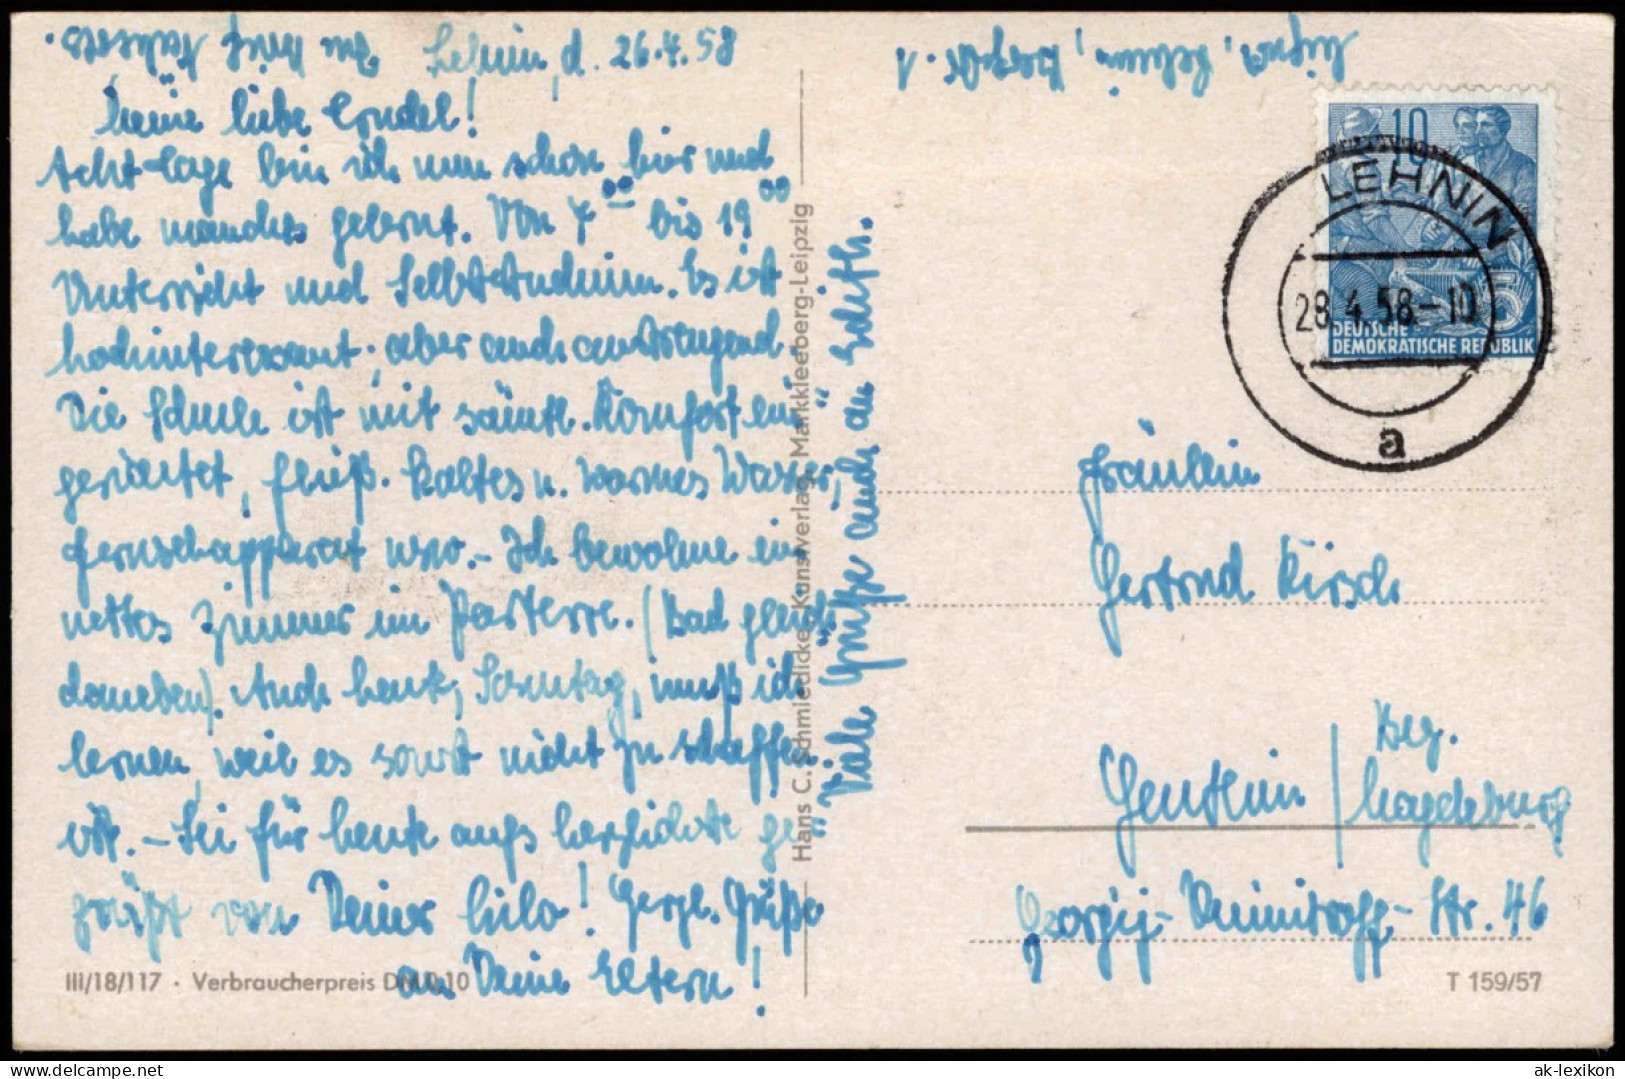 Lehnin, d. 26.4.58
Meine liebe Trudel!
Acht Tage bin ich nun schon hier und
habe manches gelernt. Von 7⁰⁰ bis 19⁰⁰
Unterricht und Selbststudium. Es ist
hochinteressant, aber auch anstrengend.
Die Schule ist mit sämtl. Komfort ein
gerichtet, fließ. kaltes u. warmes Wasser,
Fernsehapparat usw. - Ich bewohne ein
nettes Zimmer im Parterre. (Bad gleich
daneben). Auch heute, Sonntag, muß ich
lernen, weil es sonst nicht zu schaffen
ist. - Sei für heute aufs herzlichste ge"
grüßt von Deiner Lilo! Herzl. Grüße
an Deine Eltern!
Viele Grüße auch an Edith.
Hans C. Schmiedicke, Kunstverlag, Markkleeberg-Leipzig
III/18/117 · Verbraucherpreis DM 0,10
10
5
DEUTSCHE
DEMOKRATISCHE REPUBLIK
LEHNIN
28.4.58-10
a
Fräulein
Gertrud Kirsch
Genthin / Bez. Magdeburg
Georgij-Dimitroff-Str. 46
T 159/57
ak-lexikon